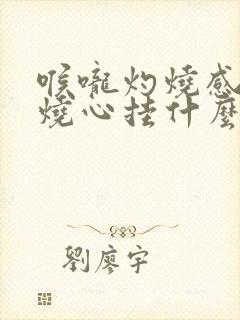 喉嚨灼燒感
燒心挂什麼
劉廖宇